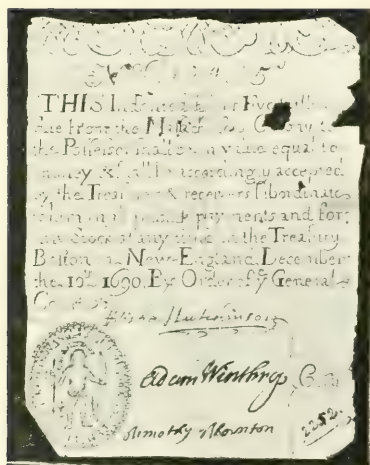 THIS Indented Bill of Five Shillings
due from the Massachusetts Colony to
the Possessor shall be in value equal to
money & shall be accordingly accepted
by the Treasurer & receivers subordinate
to him in all publick payments and for
any Stock at any time in the Treasury
Boston in New-England December
the 10th 1690. By Order of ye General
Court
Elisha Hutchinson
Adam Winthrop Com
Timothy Thornton
2252